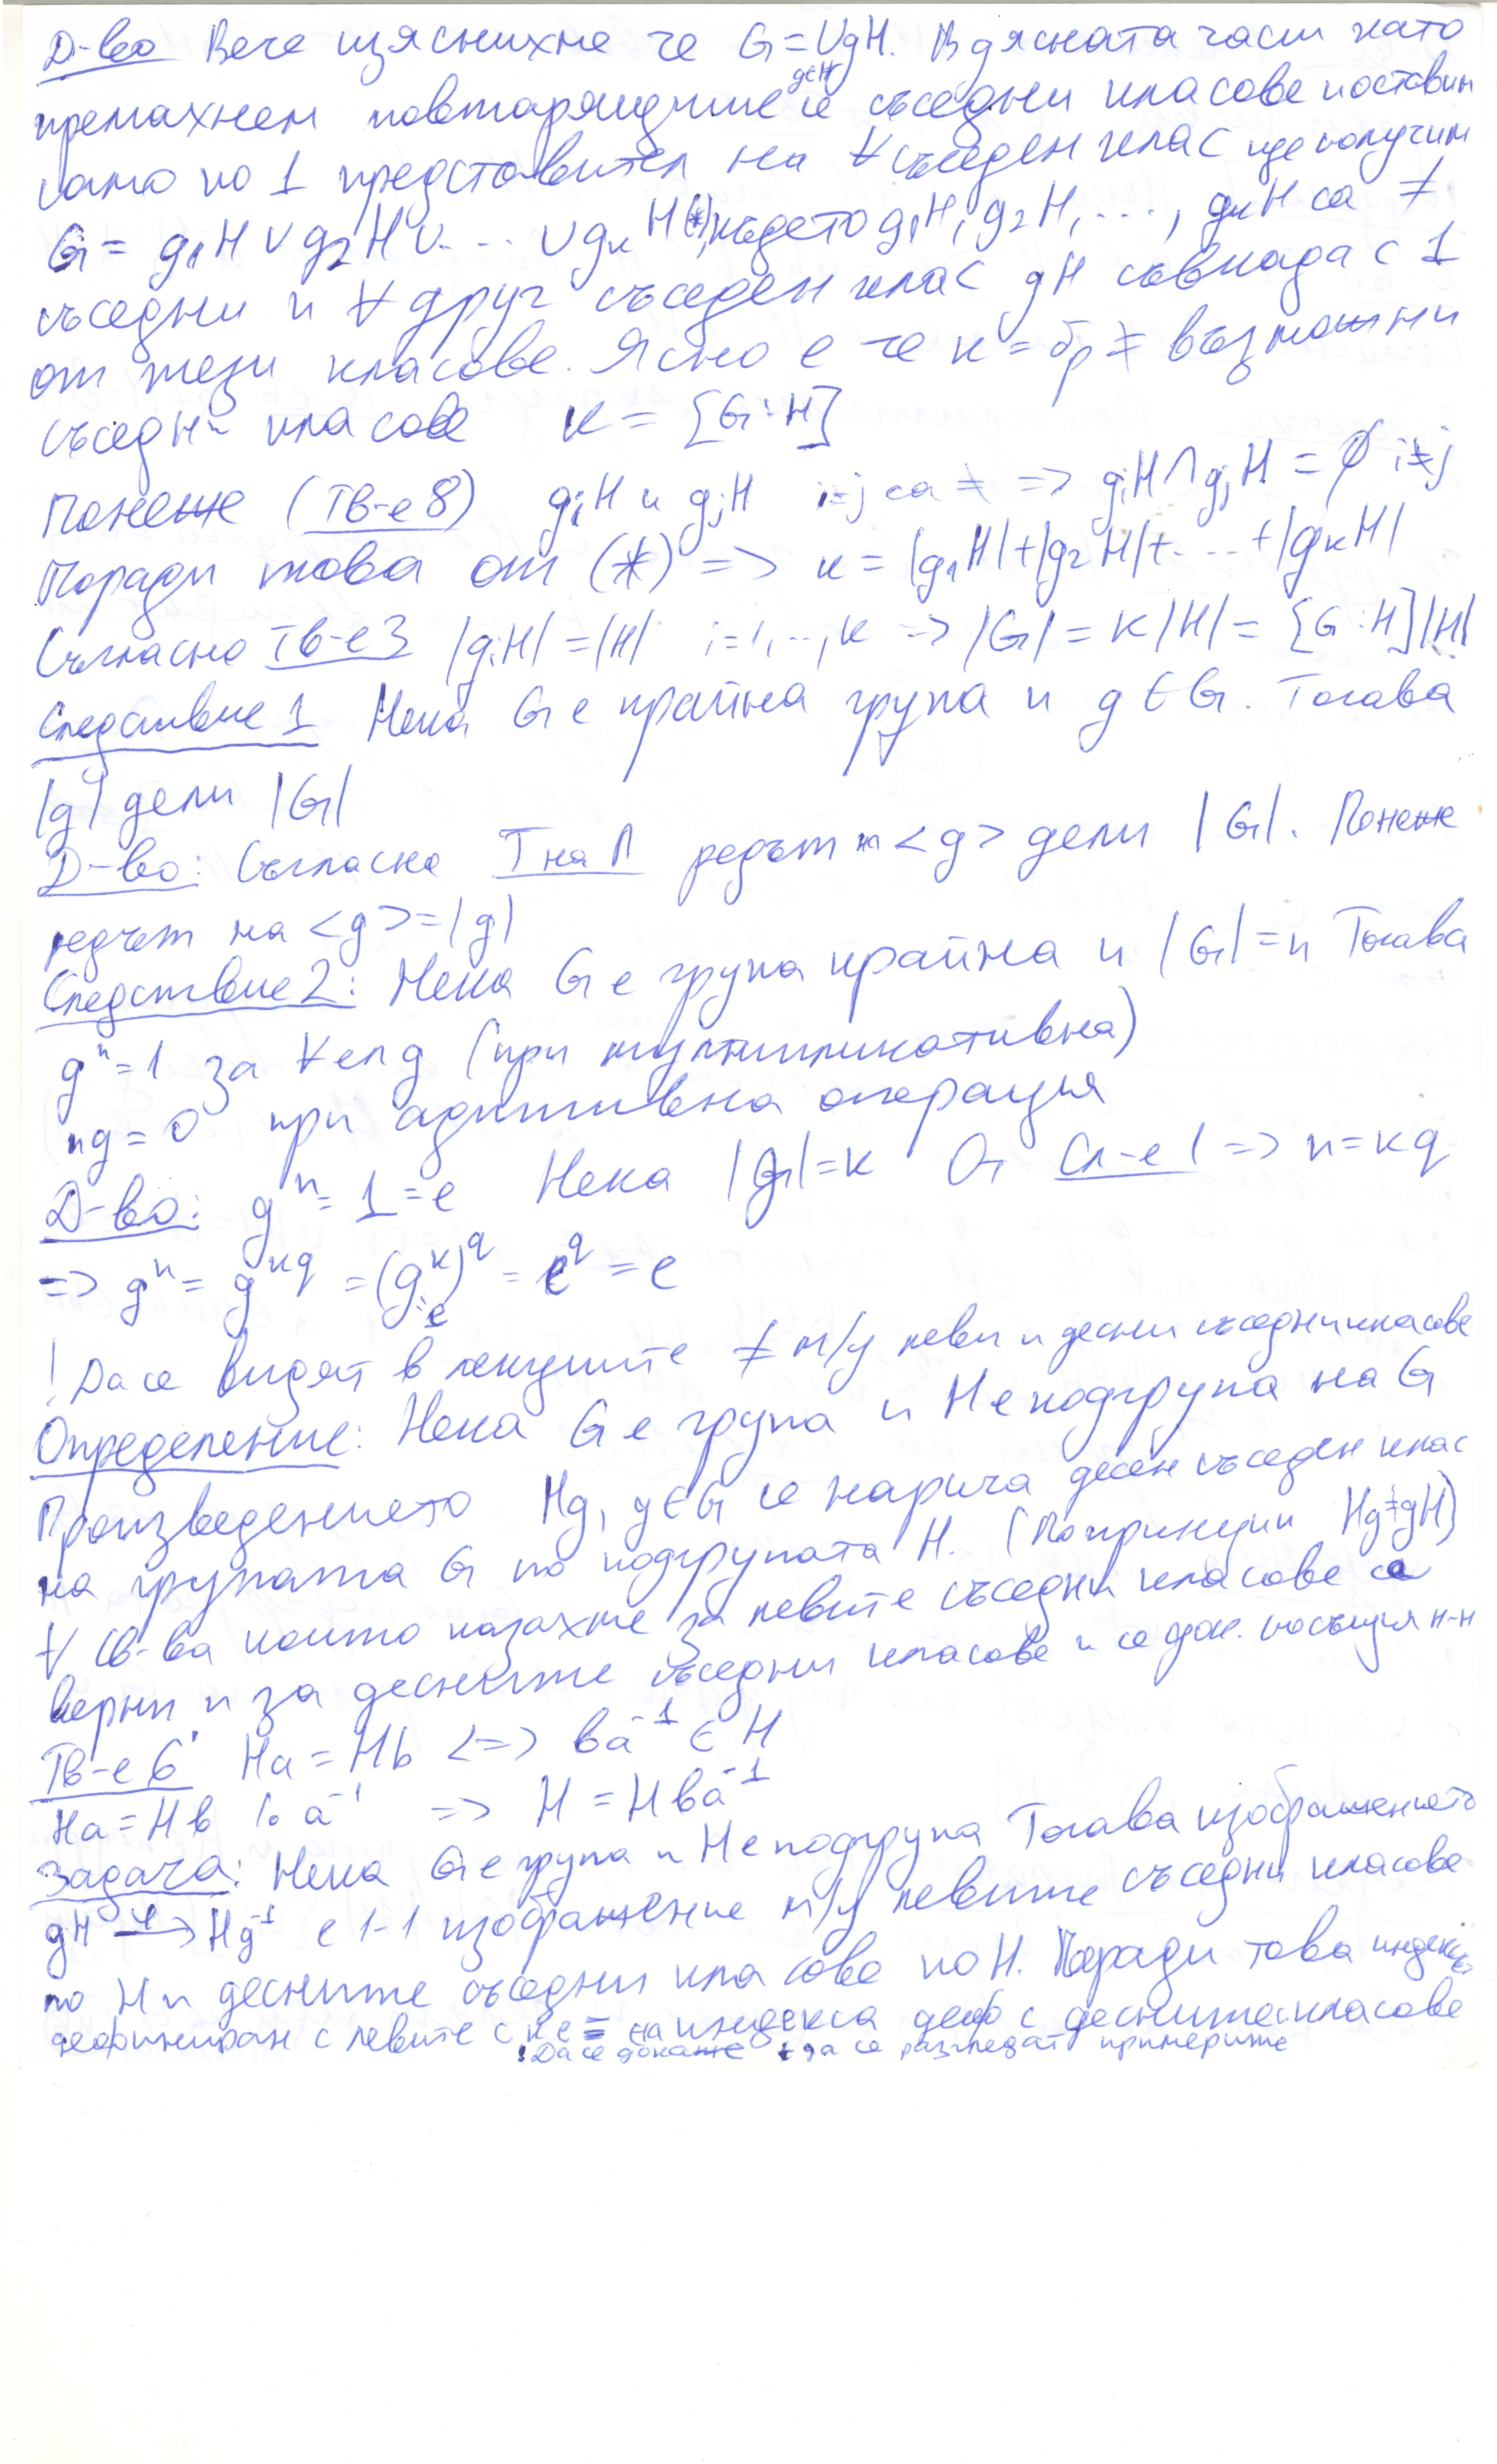 Д-во Вече изяснихме че G=∪gH. В дясната част като
g∈H
премахнем повтарящите се съседни класове и оставим
само по 1 представител на ∀ съседен клас ще получим
G = g₁H ∪ g₂H ∪ ... ∪ gкH (*), където g₁H, g₂H, ..., gкH са ≠
съседни и ∀ друг съседен клас gH съвпада с 1
от тези класове. Ясно е че к = бр ≠ възможни
съседни класове к = [G:H]
Понеже (Тв-е 8) gᵢH и gⱼH i≠j са ≠ => gᵢH ∩ gⱼH = ∅ i≠j
Поради това от (*) => к = |g₁H|+|g₂H|+...+|gкH|
Съгласно Тв-е 3 |gᵢH| = |H| i=1,...,к => |G| = к|H| = [G:H]|H|
Следствие 1 Нека G е крайна група и g∈G. Тогава
|g| дели |G|
Д-во: Съгласно Т на Л редът на <g> дели |G|. Понеже
редът на <g>=|g|
Следствие 2: Нека G е група крайна и |G|=n Тогава
gⁿ=1 за ∀ ел g (при мултипликативна)
ng=0 при адитивна операция
Д-во: gⁿ=1=e Нека |g|=к От Сл-е 1 => n=кq
=> gⁿ = g^кq = (g^к)^q = e^q = e
"e
! Да се видят в лекциите ≠ м/у леви и десни съседни класове
Определение: Нека G е група и H е подгрупа на G
Произведението Hg, g∈G се нарича десен съседен клас
на групата G по подгрупата H. (По принцип Hg≠gH)
∀ св-ва които казахме за левите съседни класове са
верни и за десните съседни класове и се док. по същия н-н
Тв-е 6' Ha=Hb <=> ba⁻¹∈H
Ha=Hb |.a⁻¹ => H=Hba⁻¹
Задача: Нека G е група и H е подгрупа Тогава изображението
gH -φ-> Hg⁻¹ е 1-1 изображение м/у левите съседни класове
по H и десните съседни класове по H. Поради това индекс
дефиниран с левите с к е = на индекса деф с десните с класове
! Да се докаже + да се разгледат примерите